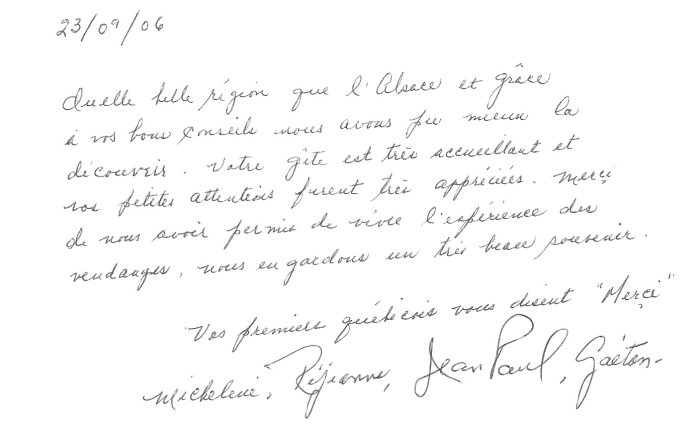 23/09/06
Quelle belle région que l'Alsace et grâce
à vos bons conseils nous avons pu mieux la
découvrir. Votre gîte est très accueillant et
vos petites attentions furent très appréciées. Merçi
de nous avoir permis de vivre l'expérience des
vendanges, nous en gardons un très beau souvenir.
Vos premiers québécois vous disent "Merçi"
Micheline, Réjeanne, Jean Paul, Gaétan-